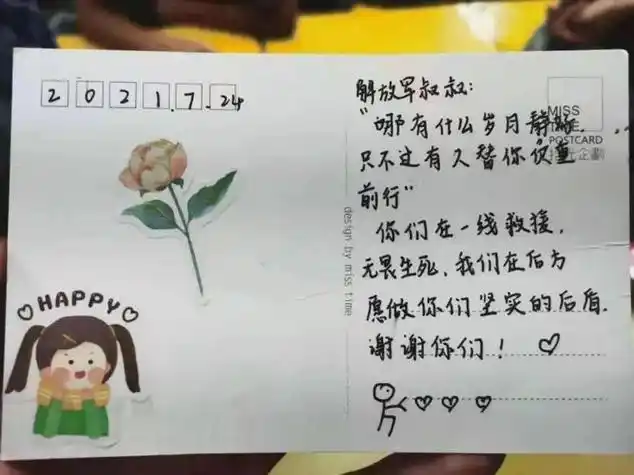 2021.7.24
解放军叔叔:
"哪有什么岁月静好,
只不过有人替你负重
前行"
你们在一线救援,
无畏生死,我们在后方
愿做你们坚实的后盾.
谢谢你们!
MISS
TIME
POSTCARD
企劃
design by miss time
HAPPY